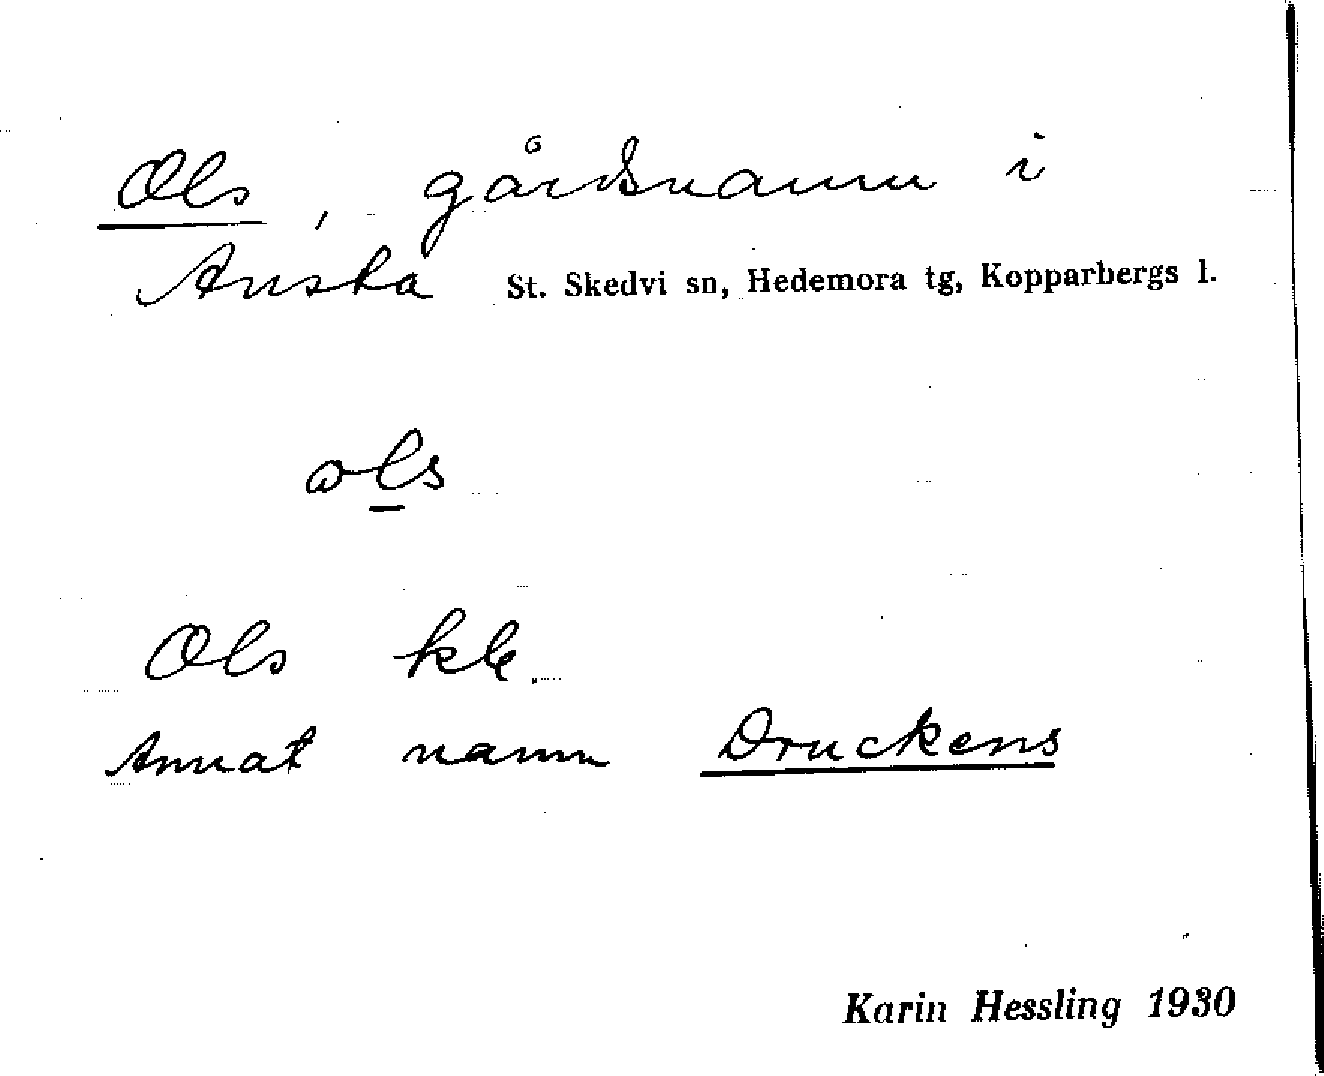 Ols, gårdsnamn i
Anska St. Skedvi sn, Hedemora tg, Kopparbergs l.
ols
Ols kb.
Annat namn Druckens
Karin Hessling 1930